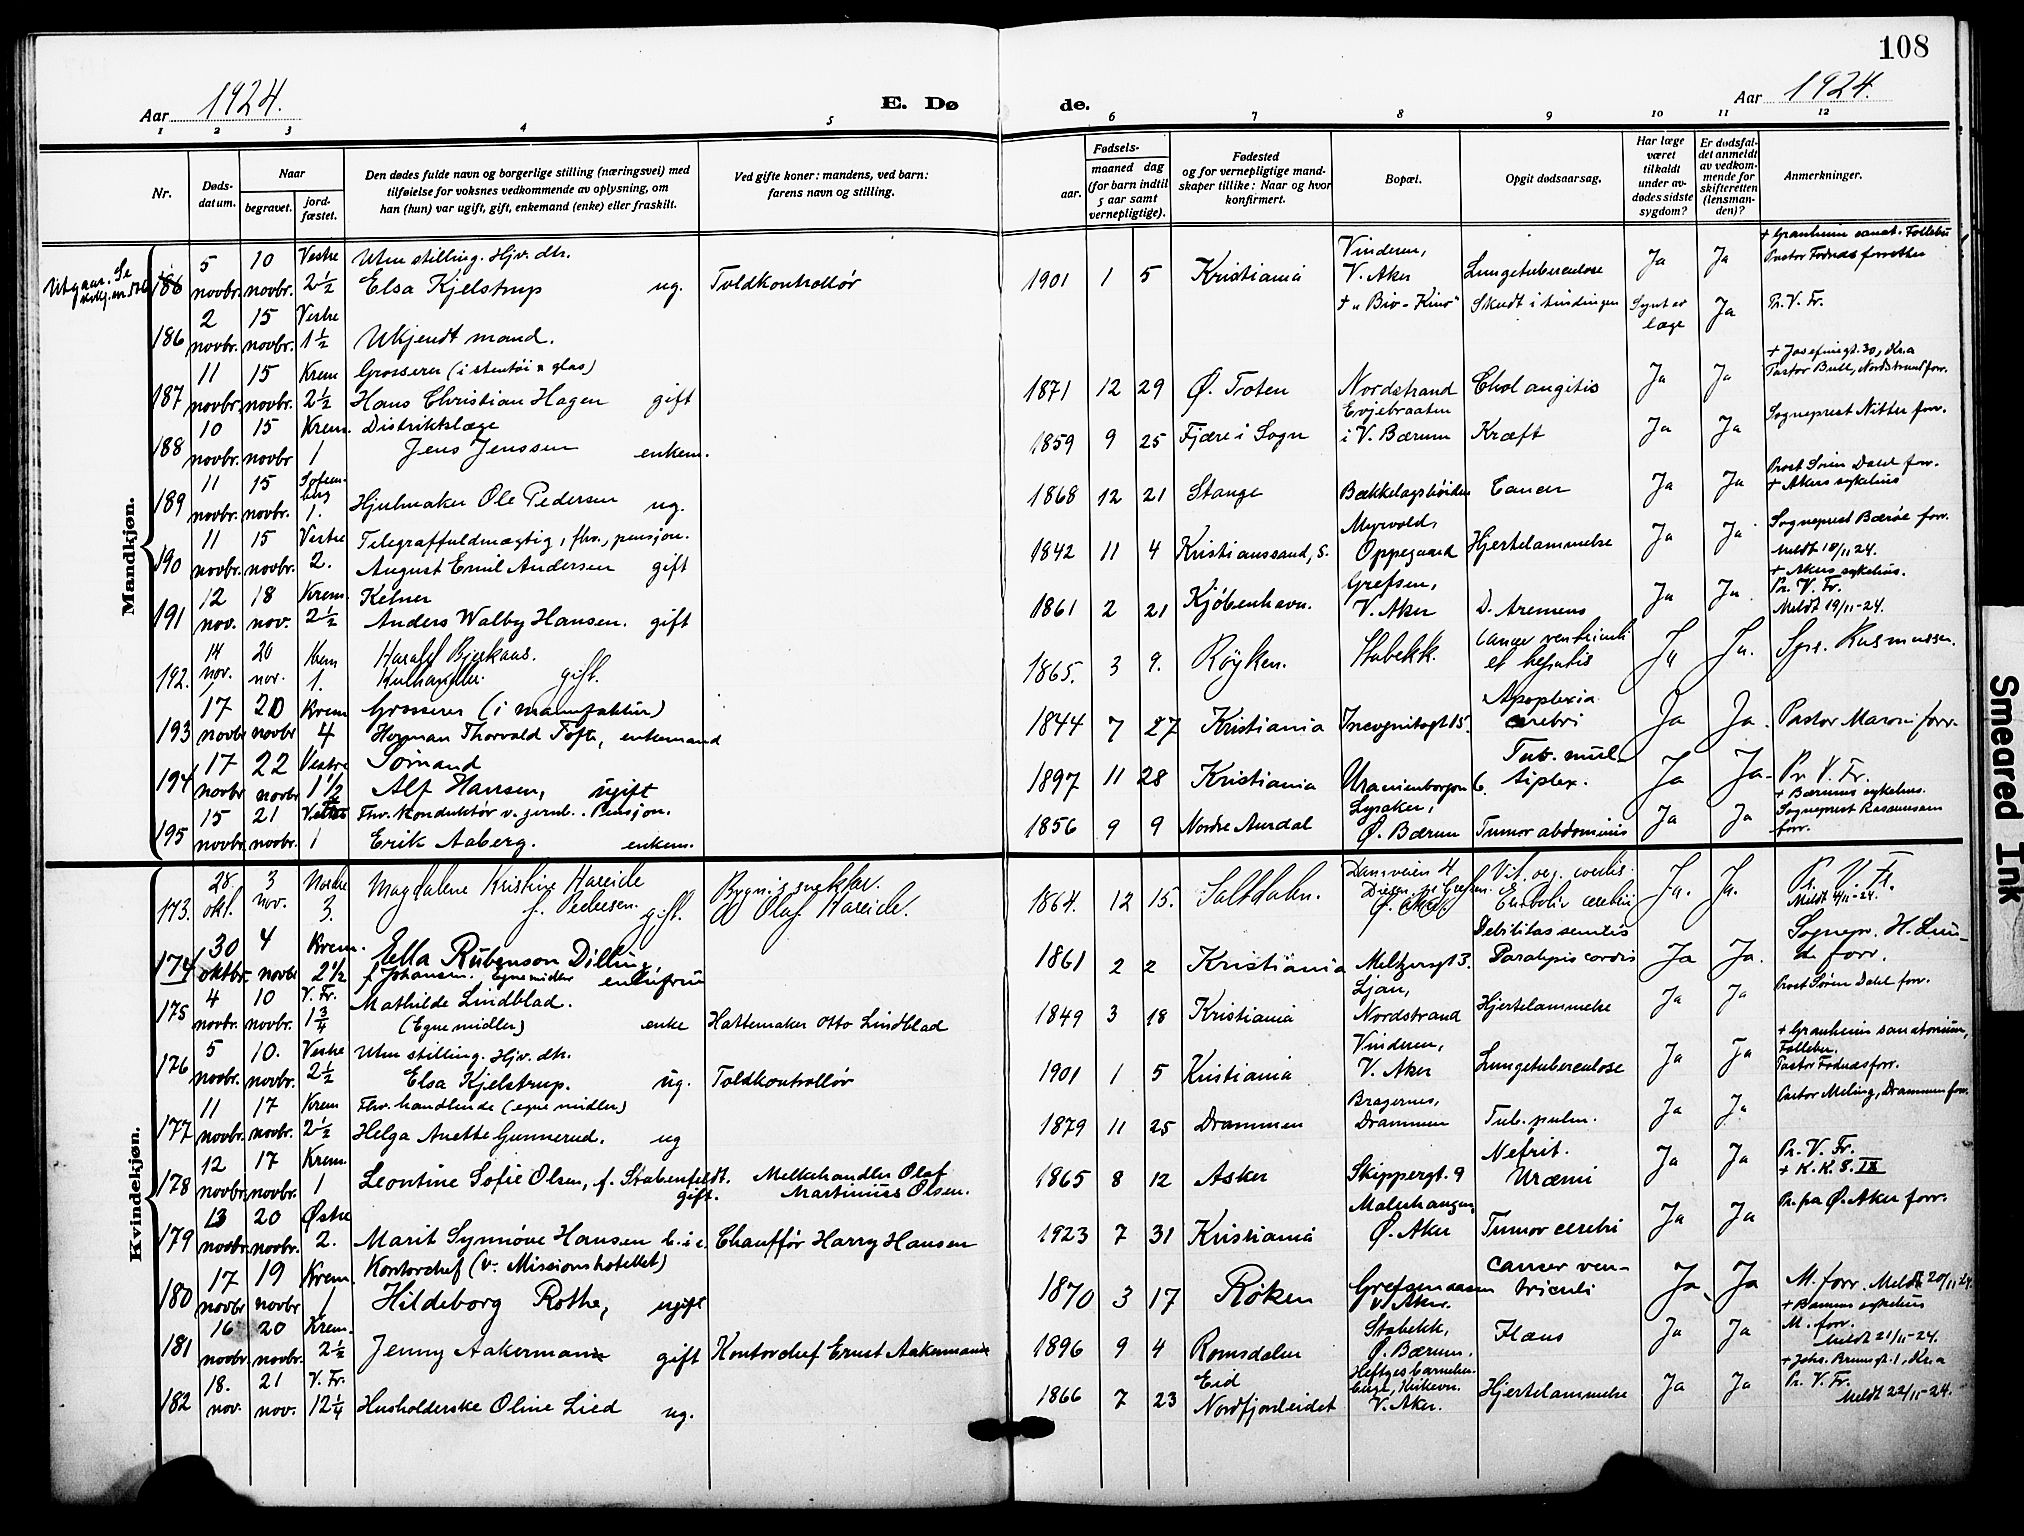 108
Aar 1924. E. Dø de. Aar 1924.
1 2 3 4 5 6 7 8 9 10 11 12
Nr.
Døds-
datum.
Naar
begravet.
jord-
fæstet.
Den dødes fulde navn og borgerlige stilling (næringsvei) med
tilføielse for voksnes vedkommende av oplysning, om
han (hun) var ugift, gift, enkemand (enke) eller fraskilt.
Ved gifte koner: mandens, ved barn:
farens navn og stilling.
Fødsels-
aar.
maaned dag
(for barn indtil
5 aar samt
vernepligtige).
Fødested
og for vernepligtige mand-
skaper tillike: Naar og hvor
konfirmert.
Bopæl.
Opgit dødsaarsag.
Har læge
været
tilkaldt
under av-
dødes sidste
sygdom?
Er dødsfal-
det anmeldt
av vedkom-
mende for
skifteretten
(lensman-
den)?
Anmerkninger.
Mandkjøn.
Utgaar. Se
5 10 Vestre Uten stilling. Hjv. dtr. Vinderen, + Granheim sanat. Follebu
186 novbr. novbr. 2½ Elsa Kjelstrup ug. Toldkontrollør 1901 1 5 Kristiania V. Aker Lungetuberculose Ja Ja Pastor Fodnæs forrettet
2 15 Vestre + "Bio-Kino" Skudt i tindingen Synt av Pr. V. Fr.
186 novbr. novbr. 1½ Ukjendt mand. læge Ja
11 15 Krem Grosserer (i stentøi & glas) + Josefinesgt. 30, Kr.a
187 novbr. novbr. 2½ Hans Christian Hagen gift 1871 12 29 Ø. Toten Nordstrand Cholangitis Ja Ja Pastor Bull, Nordstrand forr.
10 15 Krem. Distriktslæge Evjebraaten Sogneprest Nitter forr.
188 novbr. novbr 1 Jens Jenssen enkem. 1859 9 25 Fjære i Sogn i V. Bærum Kræft Ja Ja
11 15 Sofien- Prost Sören Dahl forr.
berg
189 novbr. novbr. 1. Hjulmaker Ole Pedersen ug. 1868 12 21 Stange Bækkelagshøiden Cancer Ja Ja + Akers sykehus
11 15 Vestre Telegraffuldmægtig, fhv., pensjon. Myrvold, Sogneprest Bærøe forr.
190 novbr. novbr. 2. August Emil Andersen gift 1842 11 4 Kristianssand, S. Oppegaard Hjertelammelse Ja Ja Meldt 18/11 24.
12 18 Krem. Kelner Grefsen, + Akers sykehus.
191 nov. nov. 2½ Anders Walby Hansen. gift 1861 2 21 Kjøbenhavn. V. Aker D. Aremens Ja Ja Pr. V. Fr.
Meldt 19/11-24.
14 20 Krem Harald Bjerkaas. Cancer ventriculi
192. nov. nov. 1. Kulhandler. gift. 1865. 3 9. Røyken. Stabekk. et hepatis Ja Ja. Spr. Rasmussen.
17 20 Krem Grosserer (i manufaktur) Apoplexia
193 novbr novbr 4 Herman Thorvald Toft, enkemand 1844 7 27 Kristiania Incognitogt 15. cerebri Ja Ja. Pastor Maroni forr.
17 22 Vestre Sømand Tub. mul-
194 novbr novbr 1½ Alf Hansen, ugift 1897 11 28 Kristiania Uranienborgvn 6. tiplex. Ja Ja- Pr. V. Fr.
15 21 Vestre Fhv. Konduktør v. jernb.. Pensjon. Lysaker, + Bærums sykehus.
195 novbr. novbr. 1 Erik Aaberg. enkem. 1856 9 9 Nordre Aurdal Ø. Bærum Tumor abdominis Ja Ja Sogneprest Rasmussen
forr.
Kvindekjøn.
28. 3 Nordre Magdalene Kristine Hareide Bygn.inspektør.
173. okt. nov. 3. f. Pedersen. gift. Olaf Hareide. 1864. 12 15. Saltdalen. Vit. org. cordis. Embolia cerebri Ja. Ja. Pr. V. Fr.
Meldt 4/11-24.
30 4 Krem. Ella Rubenson Dilling Debilitas senilis Sognepr. H. Lun-
174 oktbr. novbr 2½ f. Johansen. Egne midler enkefrue 1861 2 2 Kristiania Meltzersgt 3. Paralysis cordis Ja Ja. de forr.
4 10 V. Fr. Mathilde Lindblad. Ljan, Prost Søren Dahl forr.
175 novbr. novbr. 1¾ (Egne midler) enke Hattemaker Otto Lindblad 1849 3 18 Kristiania Nordstrand Hjertelammelse Ja Ja
5 10. Vestre Uten stilling. Hjv. dtr. Vinderen, + Granheim sanatorium,
Follebu.
176 novbr. novbr. 2½ Elsa Kjelstrup. ug. Toldkontrollør 1901 1 5 Kristiania V. Aker Lungetuberculose Ja Ja Pastor Fodnæs forr.
11 17 Krem Fhv. handlende (egne midler) Bragernes, Pastor Meling, Drammen forr.
177 novbr. novbr. 2½ Helga Anette Gunnerud. ug 1879 11 25 Drammen Drammen Tub. pulm. Ja Ja
12 17 Krem. Leontine Sofie Olsen, f. Stabenfeldt. Melkehandler Olaf Nefrit. Pr. V. Fr.
178 novbr. novbr. 1 gift. Martinius Olsen. 1865 8 12 Asker Skippergt. 9 Uræmi Ja Ja + K. K. S. IX
13 20 Østre Malerhaugen, Pr. fra Ø. Aker forr.
179 novbr. novbr. 2. Marit Synnøve Hansen b. i e. Chauffør Harry Hansen 1923 7 31 Kristiania Ø. Aker Tumor cerebri Ja Ja
17 19 Krem. Kontorchef (v. Missionshotellet) Cancer ven-
180 novbr novbr 1 Hildeborg Rothe, ugift 1870 3 17 Røken Grefsenaasen V. Aker. triculi Ja Ja M. forr. Meldt 20/11-24.
16 20 Krem. Stabekk, + Bærums sykehus
181 novbr. novbr. 2½ Jenny Aakermann gift Kontorchef Ernst Aakermann 1896 9 4 Romsdalen Ø. Bærum. Ileus Ja Ja M. forr.
Meldt 21/11-24.
18. 21 V. Fr. Eid Heftyes + Johs. Brunsgt. 1, Kr.a
182 nov. nov. 12¼ Husholderske Oline Lied ug. 1866 7 23 Nordfjordeidet Kirkevn. V. Aker. Hjertelammelse Ja Ja Pr. V. Fr.
Meldt 22/11-24.
Smeared Ink